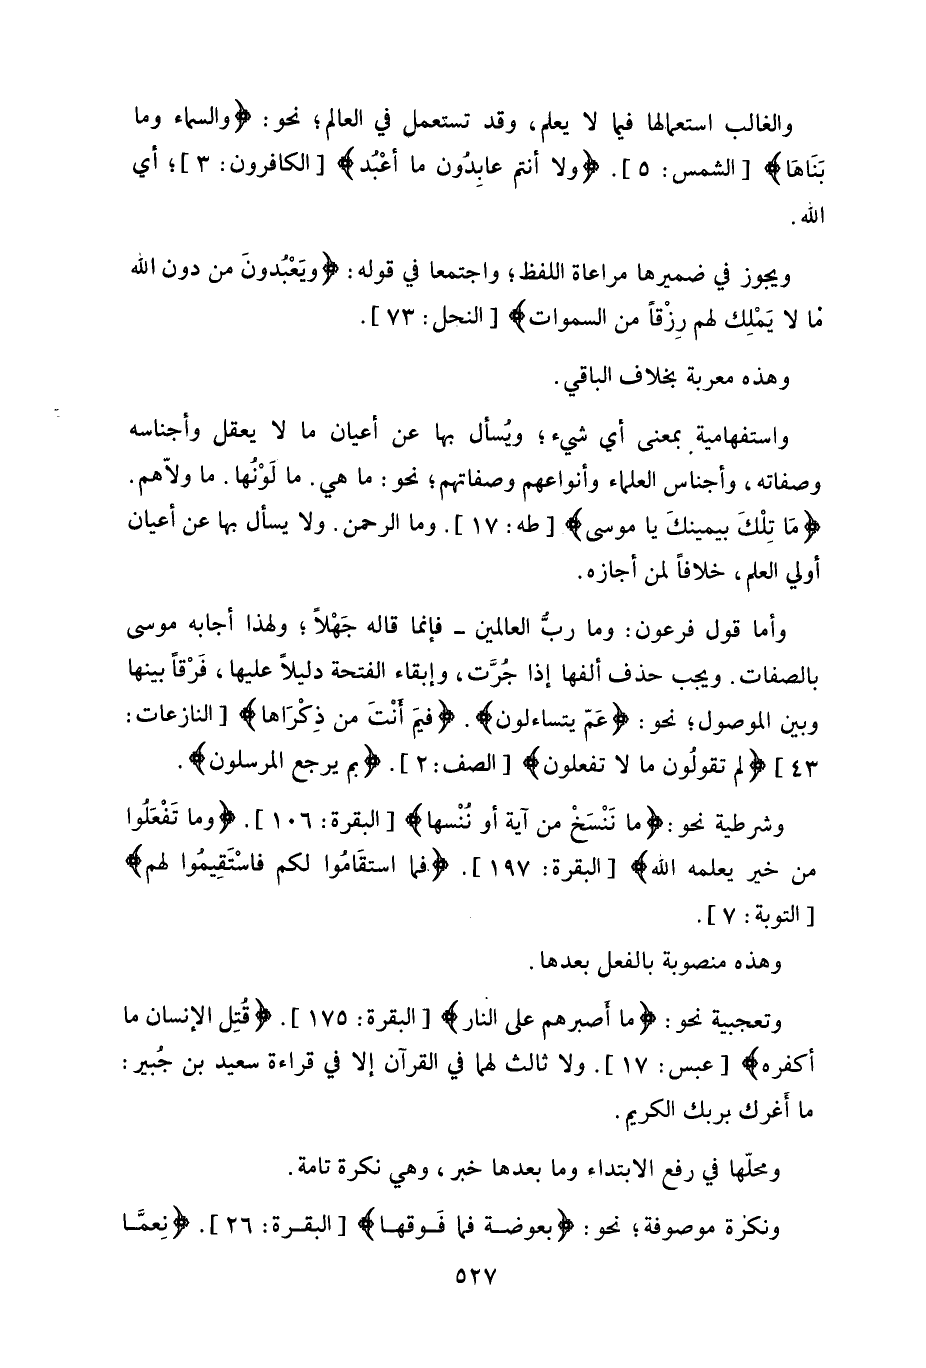 والغالب استعمالها فيما لا يعلم، وقد تستعمل في العالم؛ نحو: ﴿والسماء وما
بَنَاهَا﴾ [الشمس: ٥]. ﴿ولا أنتم عابِدُون ما أعْبُد﴾ [الكافرون: ٣]؛ أي
الله.
ويجوز في ضميرها مراعاة اللفظ؛ واجتمعا في قوله: ﴿ويَعْبُدونَ من دون الله
مْا لا يَمْلِك لهم رِزْقاً من السموات﴾ [النحل: ٧٣].
وهذه معربة بخلاف الباقي.
واستفهامية بمعنى أي شيء؛ ويُسأل بها عن أعيان ما لا يعقل وأجناسه
وصفاته، وأجناس العلماء وأنواعهم وصفاتهم؛ نحو: ما هي. ما لَوْنُها. ما ولاّهم.
﴿مَا تِلْكَ بيمينكَ يا موسى﴾ [طه: ١٧]. وما الرحمن. ولا يسأل بها عن أعيان
أولي العلم، خلافاً لمن أجازه.
وأما قول فرعون: وما ربُّ العالمين - فإنما قاله جَهْلاً؛ ولهذا أجابه موسى
بالصفات. ويجب حذف ألفها إذا جُرَّت، وإبقاء الفتحة دليلاً عليها، فَرْقاً بينها
وبين الموصول؛ نحو: ﴿عَمّ يتساءلون﴾. ﴿فيمَ أَنْتَ من ذِكْرَاها﴾ [النازعات:
٤٣] ﴿لم تقولُون ما لا تفعلون﴾ [الصف: ٢]. ﴿بم يرجع المرسلون﴾.
وشرطية نحو: ﴿ما نَنْسَخْ من آية أو نُنْسها﴾ [البقرة: ١٠٦]. ﴿وما تَفْعَلُوا
من خير يعلمه الله﴾ [البقرة: ١٩٧]. ﴿فما استقَامُوا لكم فاسْتَقِيمُوا لهم﴾
[التوبة: ٧].
وهذه منصوبة بالفعل بعدها.
وتعجبية نحو: ﴿ما أَصبرهم على النار﴾ [البقرة: ١٧٥]. ﴿قُتِل الإنسان ما
أكفره﴾ [عبس: ١٧]. ولا ثالث لهما في القرآن إلا في قراءة سعيد بن جُبير:
ما أَغرك بربك الكريم.
ومحلّها في رفع الابتداء وما بعدها خبر، وهي نكرة تامة.
ونكرة موصوفة؛ نحو: ﴿بعوضة فما فَوقها﴾ [البقرة: ٢٦]. ﴿نِعمَّا
٥٢٧